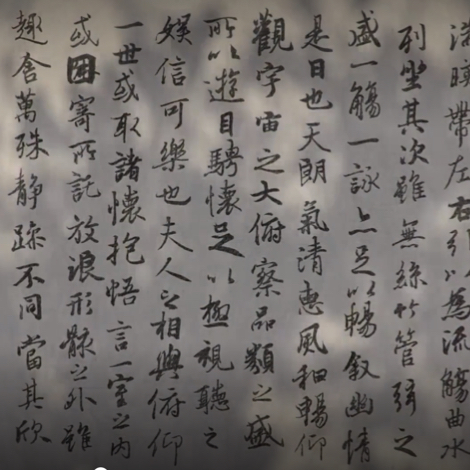 湍暎帶左右引以為流觴曲水
列坐其次雖無絲竹管弦之
盛一觴一詠亦足以暢叙幽情
是日也天朗氣清惠風和暢仰
觀宇宙之大俯察品類之盛
所以遊目騁懷足以極視聽之
娛信可樂也夫人之相與俯仰
一世或取諸懷抱悟言一室之內
或因寄所託放浪形骸之外雖
趣舍萬殊靜躁不同當其欣